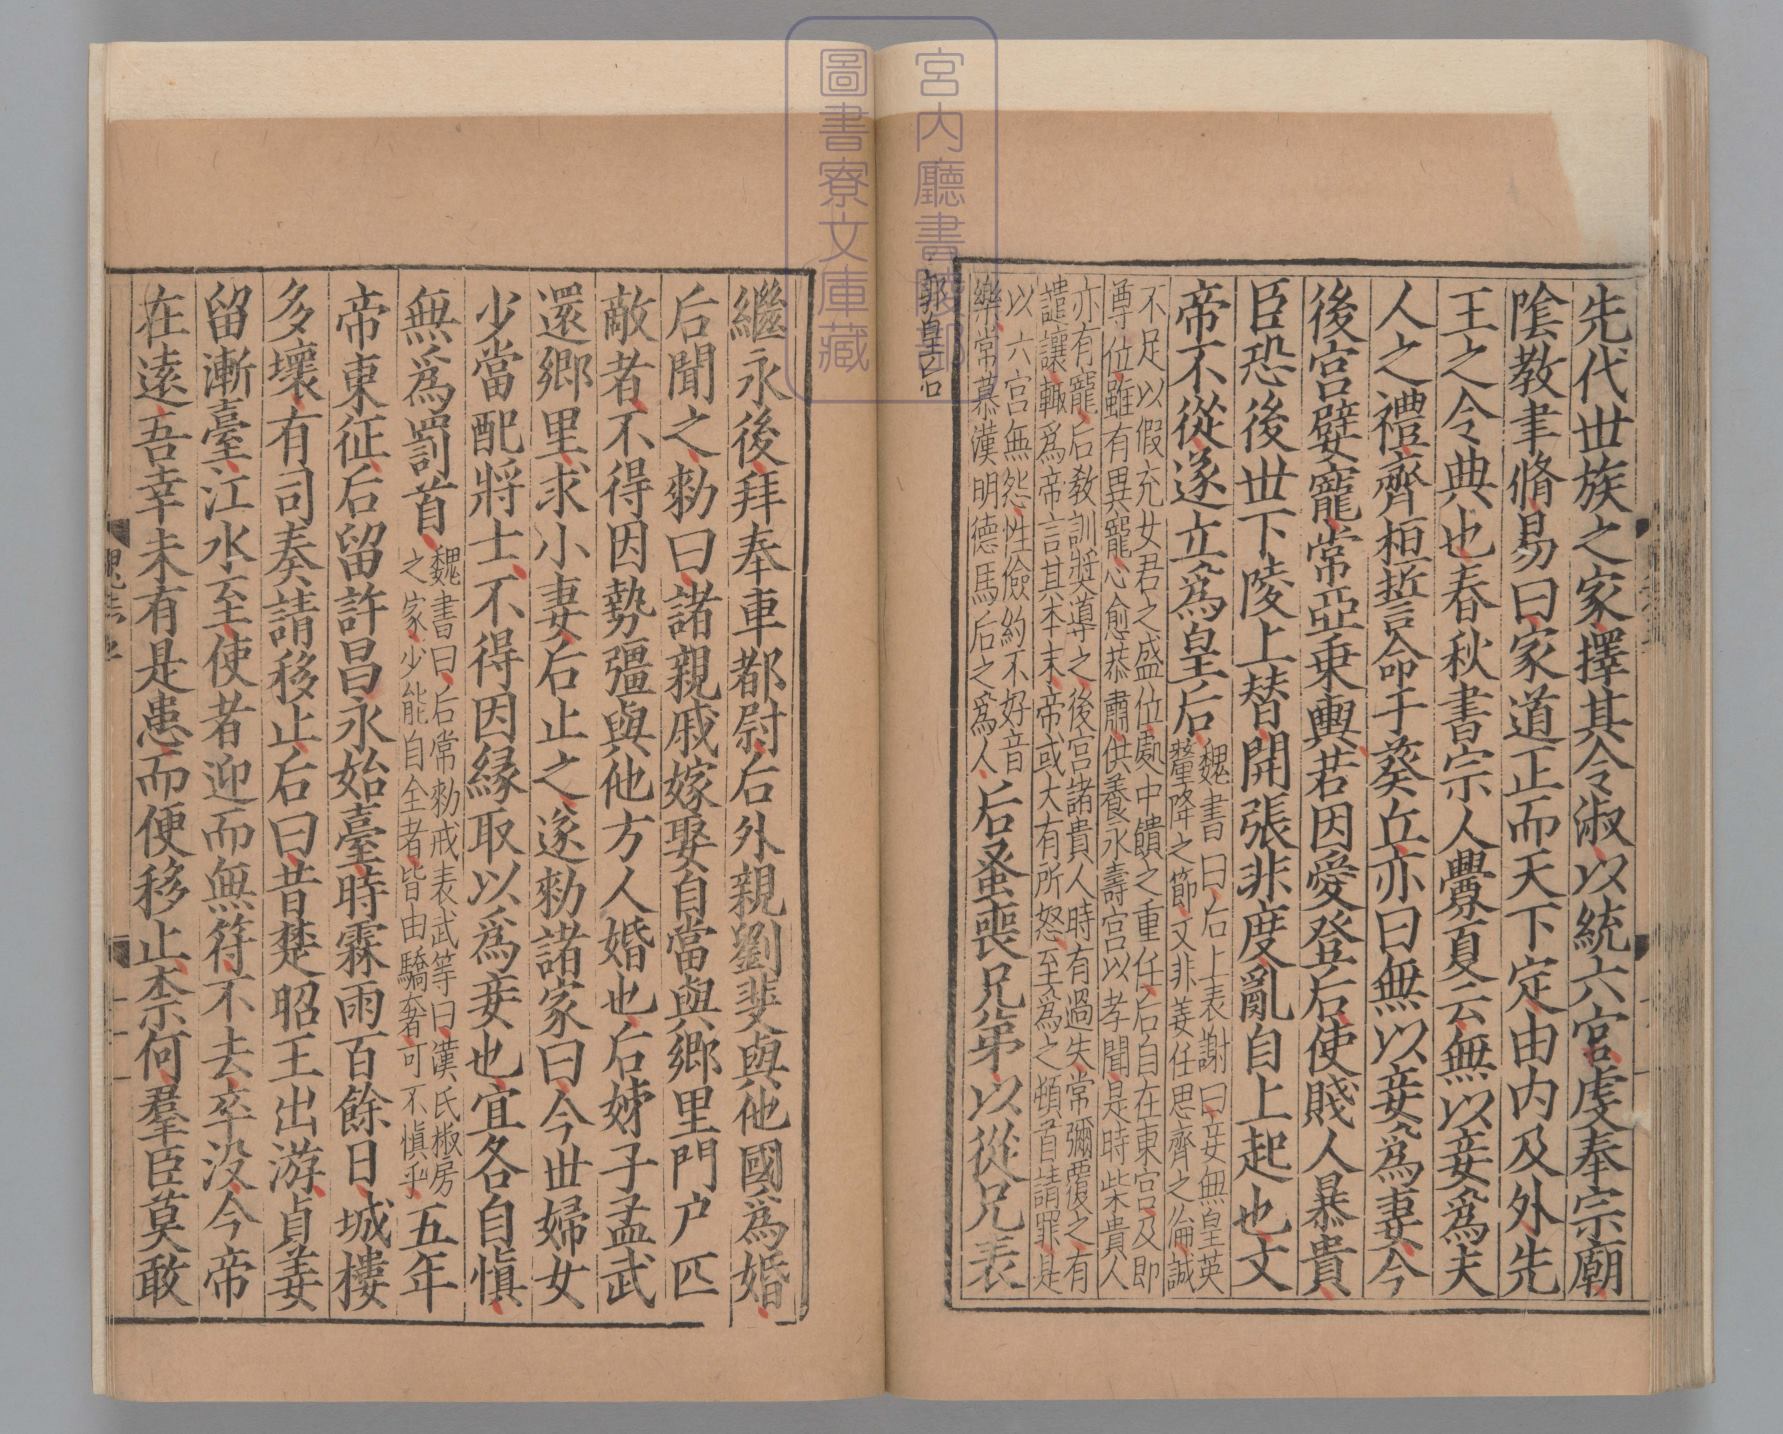 先代世族之家擇其令淑以統六宮虔奉宗廟
陰教聿脩易曰家道正而天下定由内及外先
王之令典也春秋書宗人釁夏云無以妾爲夫
人之禮齊桓誓命于葵丘亦曰無以妾爲妻今
後宮嬖寵常亞乗輿若因愛登后使賤人暴貴
臣恐後世下陵上替開張非度亂自上起也文
帝不從遂立爲皇后魏書曰后上表謝曰妾無皇英
釐降之節又非姜任思齊之倫誠
不足以假充女君之盛位處中饋之重任后自在東宮及即
尊位雖有異寵心愈恭肅供養永壽宮以孝聞是時柴貴人
亦有寵后教訓奬導之後宮諸貴人時有過失常彌覆之有
譴讓輒爲帝言其本末帝或大有所怒至爲之頓首請罪是
以六宮無怨性儉約不好音
樂常慕漢明德馬后之爲人后蚤喪兄弟以從兄表
郭皇后
繼永後拜奉車都尉后外親劉斐與他國爲婚
后聞之勑曰諸親戚嫁娶自當與郷里門户匹
敵者不得因勢彊與他方人婚也后姊子孟武
還郷里求小妻后止之遂勑諸家曰今世婦女
少當配將士不得因縁取以爲妾也宜各自愼
無爲罰首魏書曰后常勑戒表武等曰漢氏椒房
之家少能自全者皆由驕奢可不愼乎五年
帝東征后留許昌永始臺時霖雨百餘日城樓
多壞有司奏請移止后曰昔楚昭王出游貞姜
留漸臺江水至使者迎而無符不去卒没今帝
在遠吾幸未有是患而便移止柰何羣臣莫敢
宮内廳書陵部
圖書寮文庫藏